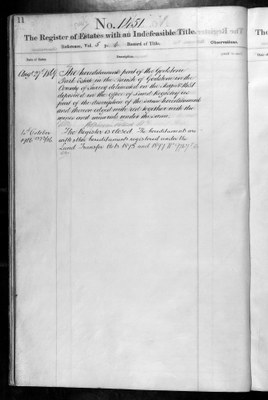 11
No. 1151
The Register of Estates with an Indefeasible Title.
Reference, Vol. 5 p. Record of Title.
Date of Entry.
Description.
Observations.
The hereditaments part of the Godstone
Park Estate in the Parish of Godstone in the
County of Surrey delineated on the Map
deposited in the Office of Land Registry as
part of the description of the same hereditaments
and thereon edged with red together with the
mines and minerals under the same.
October
The Register is closed. The hereditaments
with other hereditaments registered under the
Land Transfer Acts 1875 and 1897